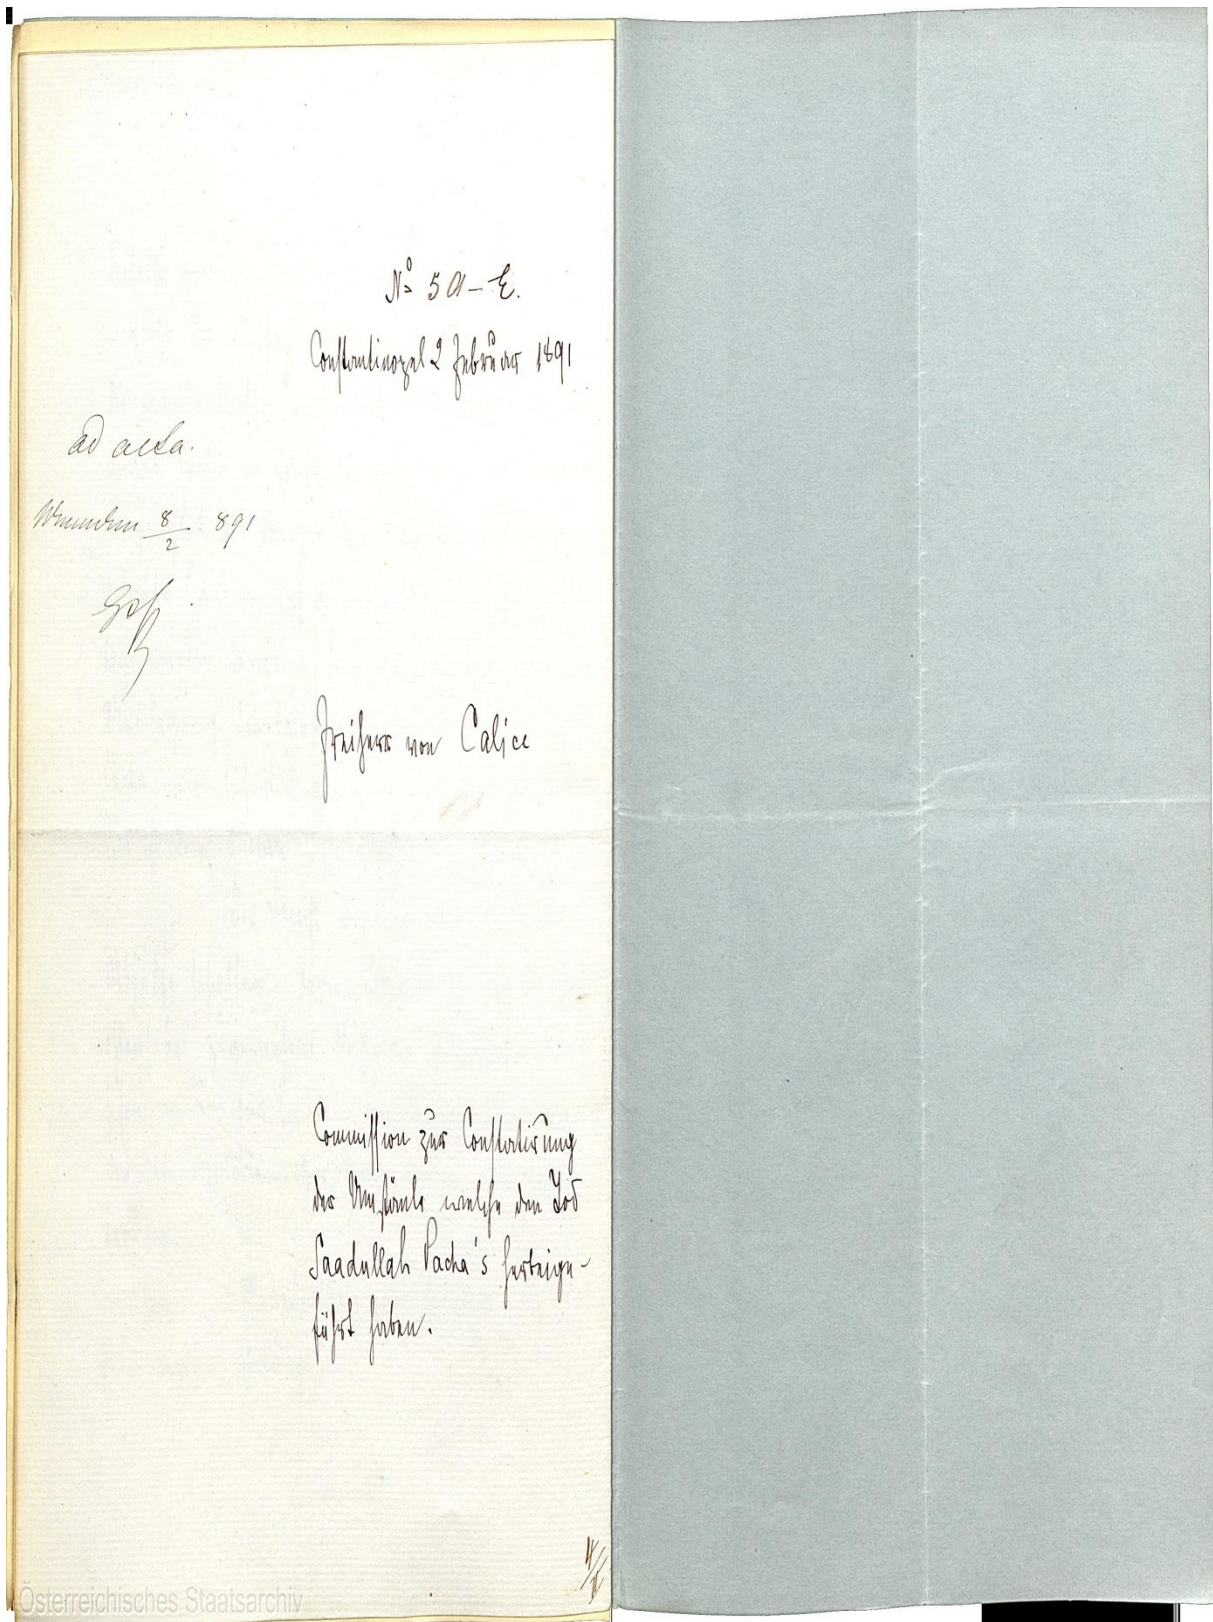 Nº 5 A–E.
Constantinopel 2 Februar 1891
ad acta.
8/2 891
Freiherr von Calice
Commission zur Constatirung
der Umstände welche den Tod
Saadullah Pacha's herbeige-
führt haben.
4/II
Österreichisches Staatsarchiv